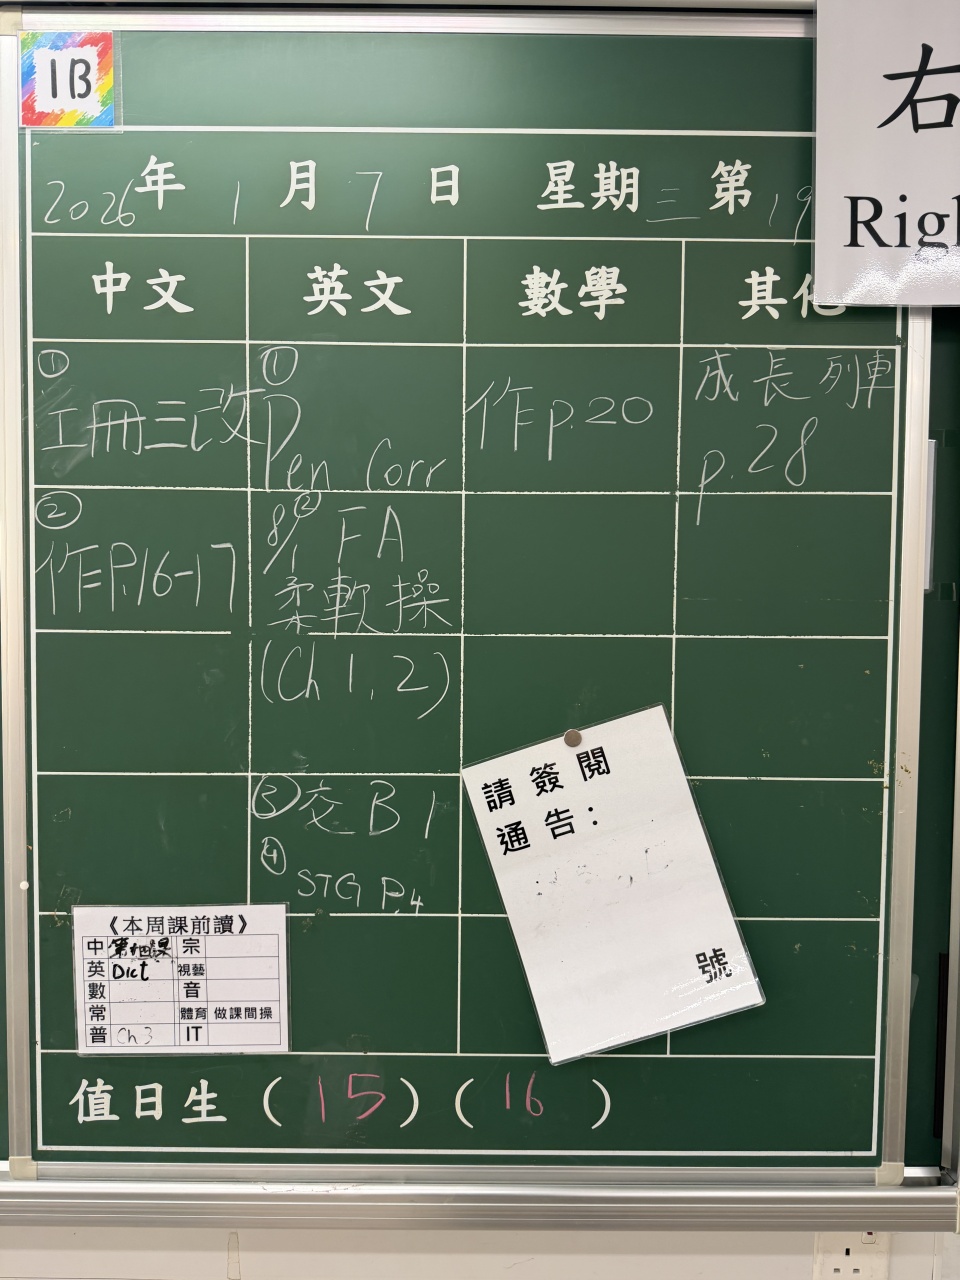 1B
右
Righ
2026年 1月 7日 星期三 第19
中文 英文 數學 其他
①
工冊三改
②
作P.16-17
①
Pen Corr
② 8/1 FA
柔軟操
(Ch 1, 2)
③ 交 B1
④ STG P.4
作 p.20
成長列車
p.28
請簽閱
通告：
號
《本周課前讀》
中 第十四課 宗
英 Dict 視藝
數 音
常 體育 做課間操
普 Ch 3 IT
值日生 (15) (16)